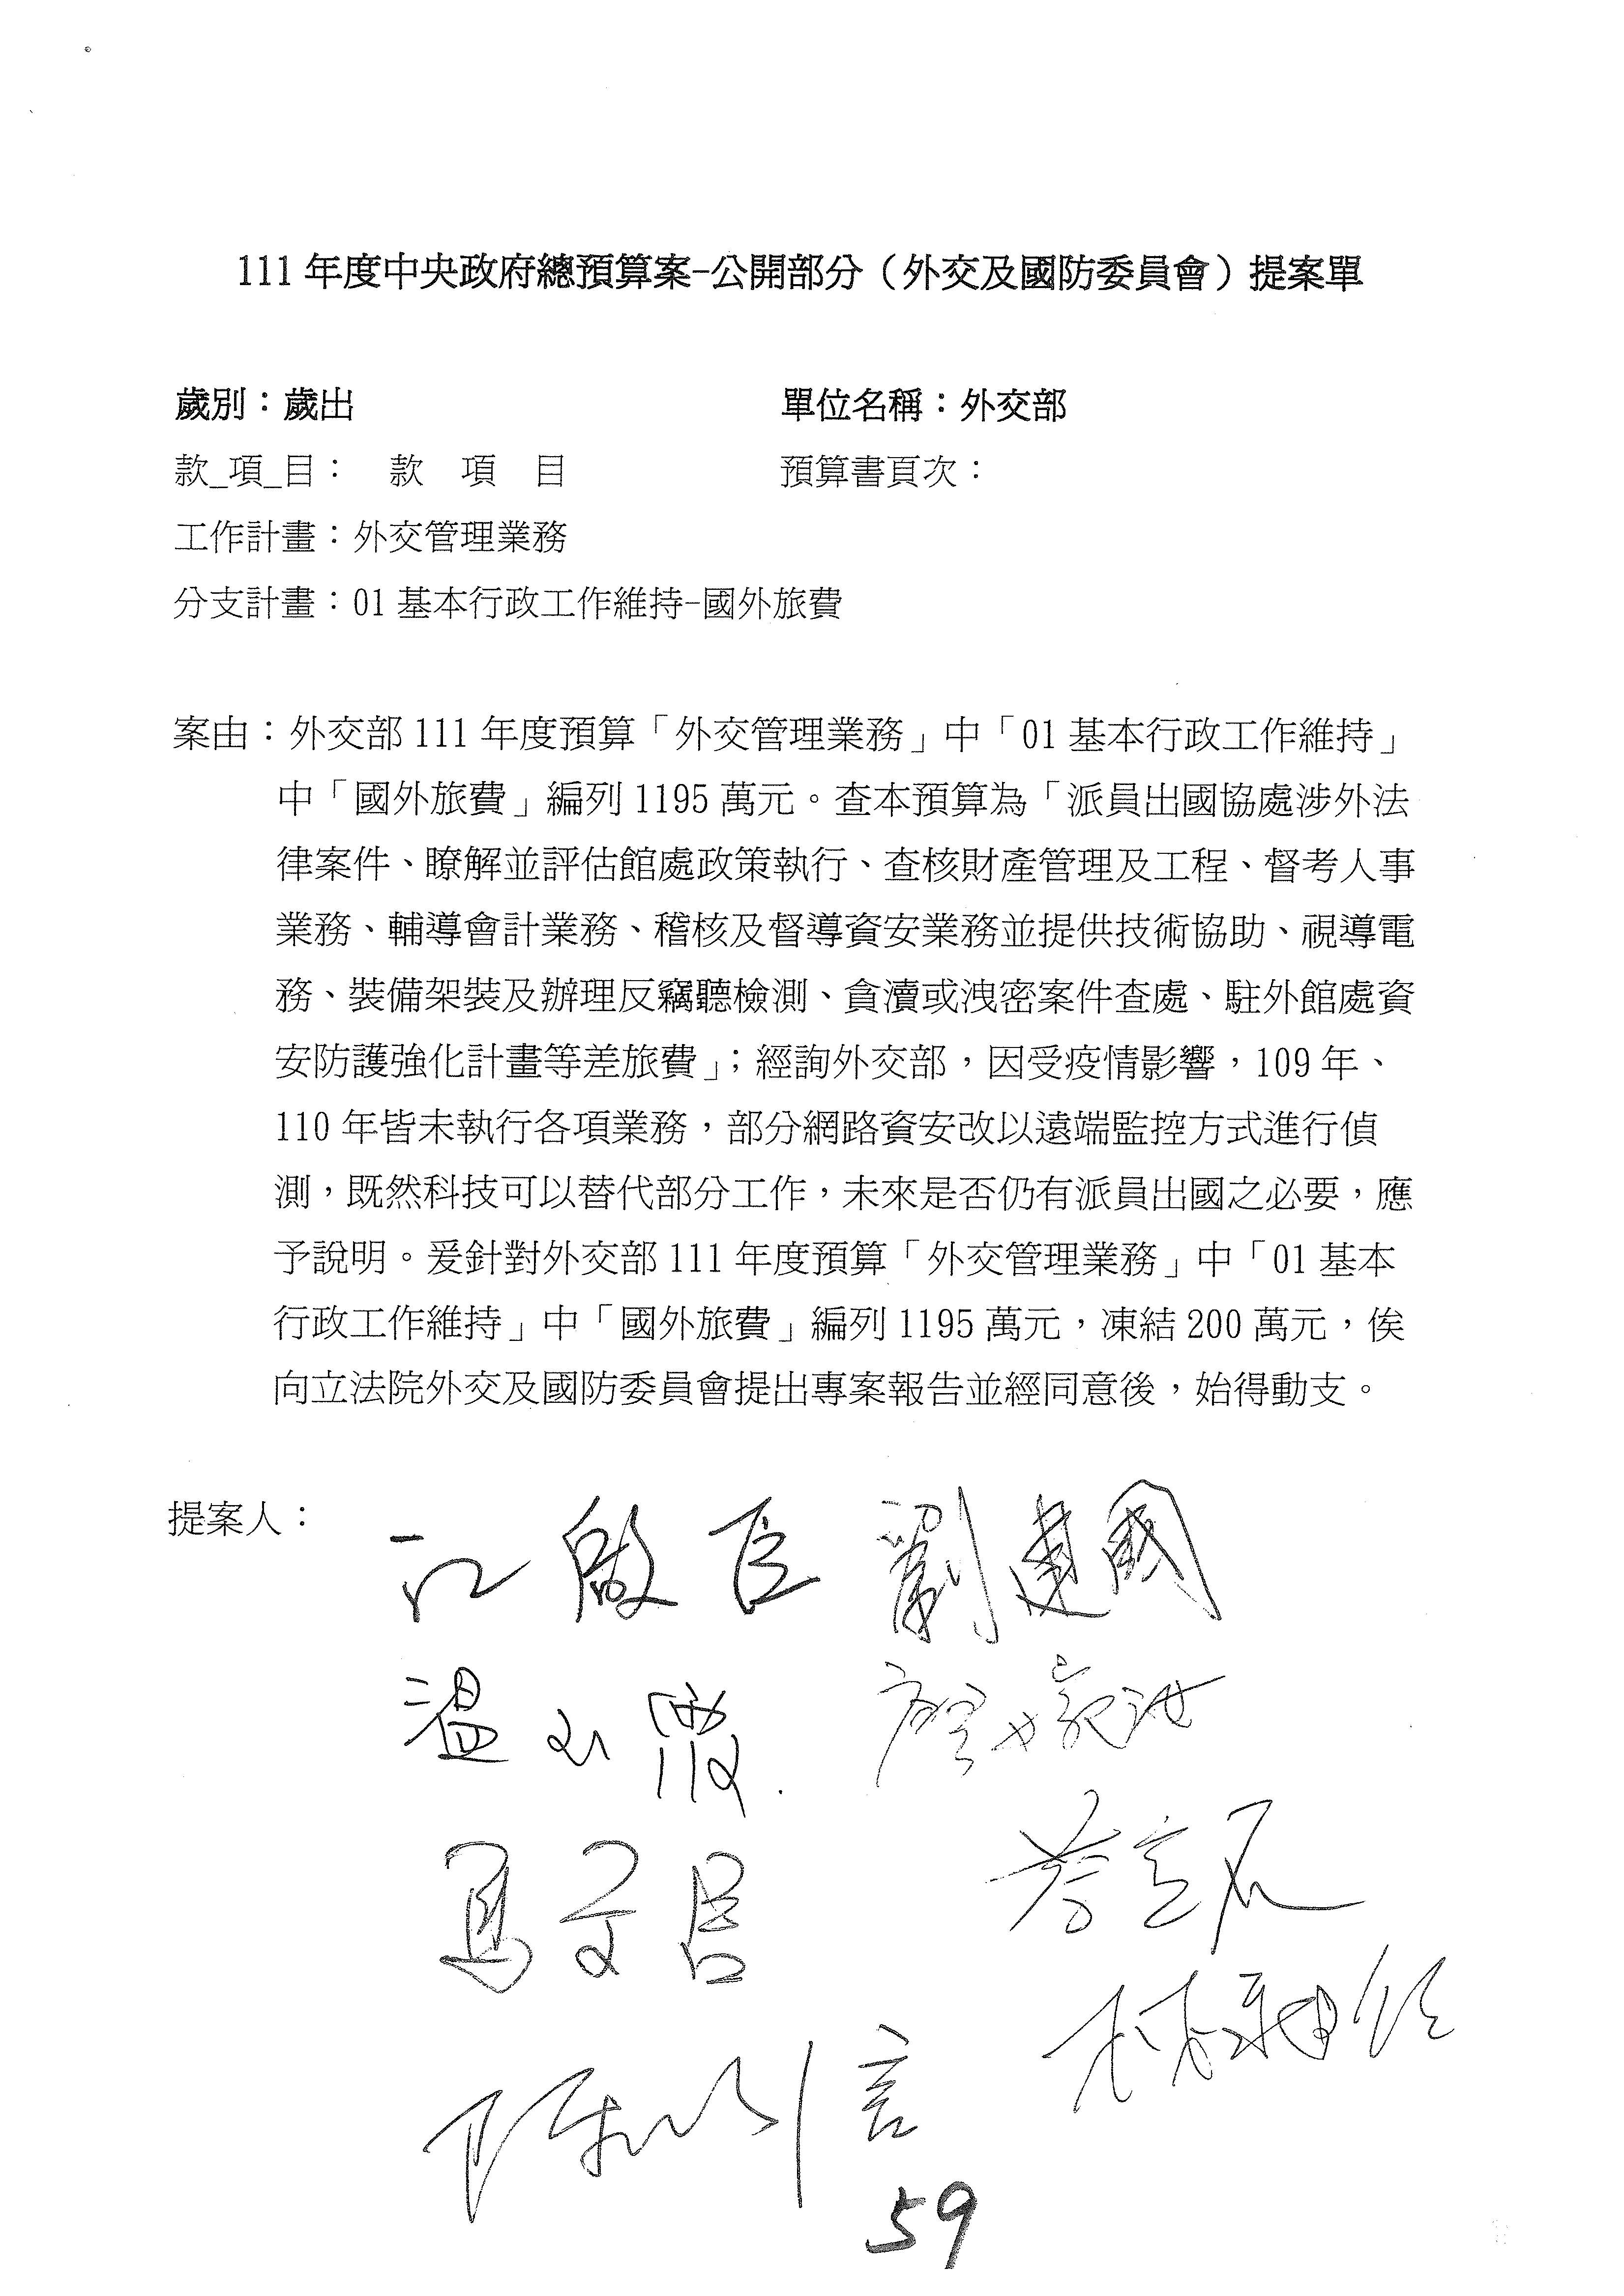 111 年度中央政府總預算案-公開部分（外交及國防委員會）提案單
歲別：歲出 單位名稱：外交部
款_項_目： 款 項 目 預算書頁次：
工作計畫：外交管理業務
分支計畫：01 基本行政工作維持-國外旅費
案由：外交部 111 年度預算「外交管理業務」中「01 基本行政工作維持」
中「國外旅費」編列 1195 萬元。查本預算為「派員出國協處涉外法
律案件、瞭解並評估館處政策執行、查核財產管理及工程、督考人事
業務、輔導會計業務、稽核及督導資安業務並提供技術協助、視導電
務、裝備架裝及辦理反竊聽檢測、貪瀆或洩密案件查處、駐外館處資
安防護強化計畫等差旅費」；經詢外交部，因受疫情影響，109 年、
110 年皆未執行各項業務，部分網路資安改以遠端監控方式進行偵
測，既然科技可以替代部分工作，未來是否仍有派員出國之必要，應
予說明。爰針對外交部 111 年度預算「外交管理業務」中「01 基本
行政工作維持」中「國外旅費」編列 1195 萬元，凍結 200 萬元，俟
向立法院外交及國防委員會提出專案報告並經同意後，始得動支。
提案人：
江啟臣 劉建國
溫玉霞 廖婉汝
馬文君
陳以信
59